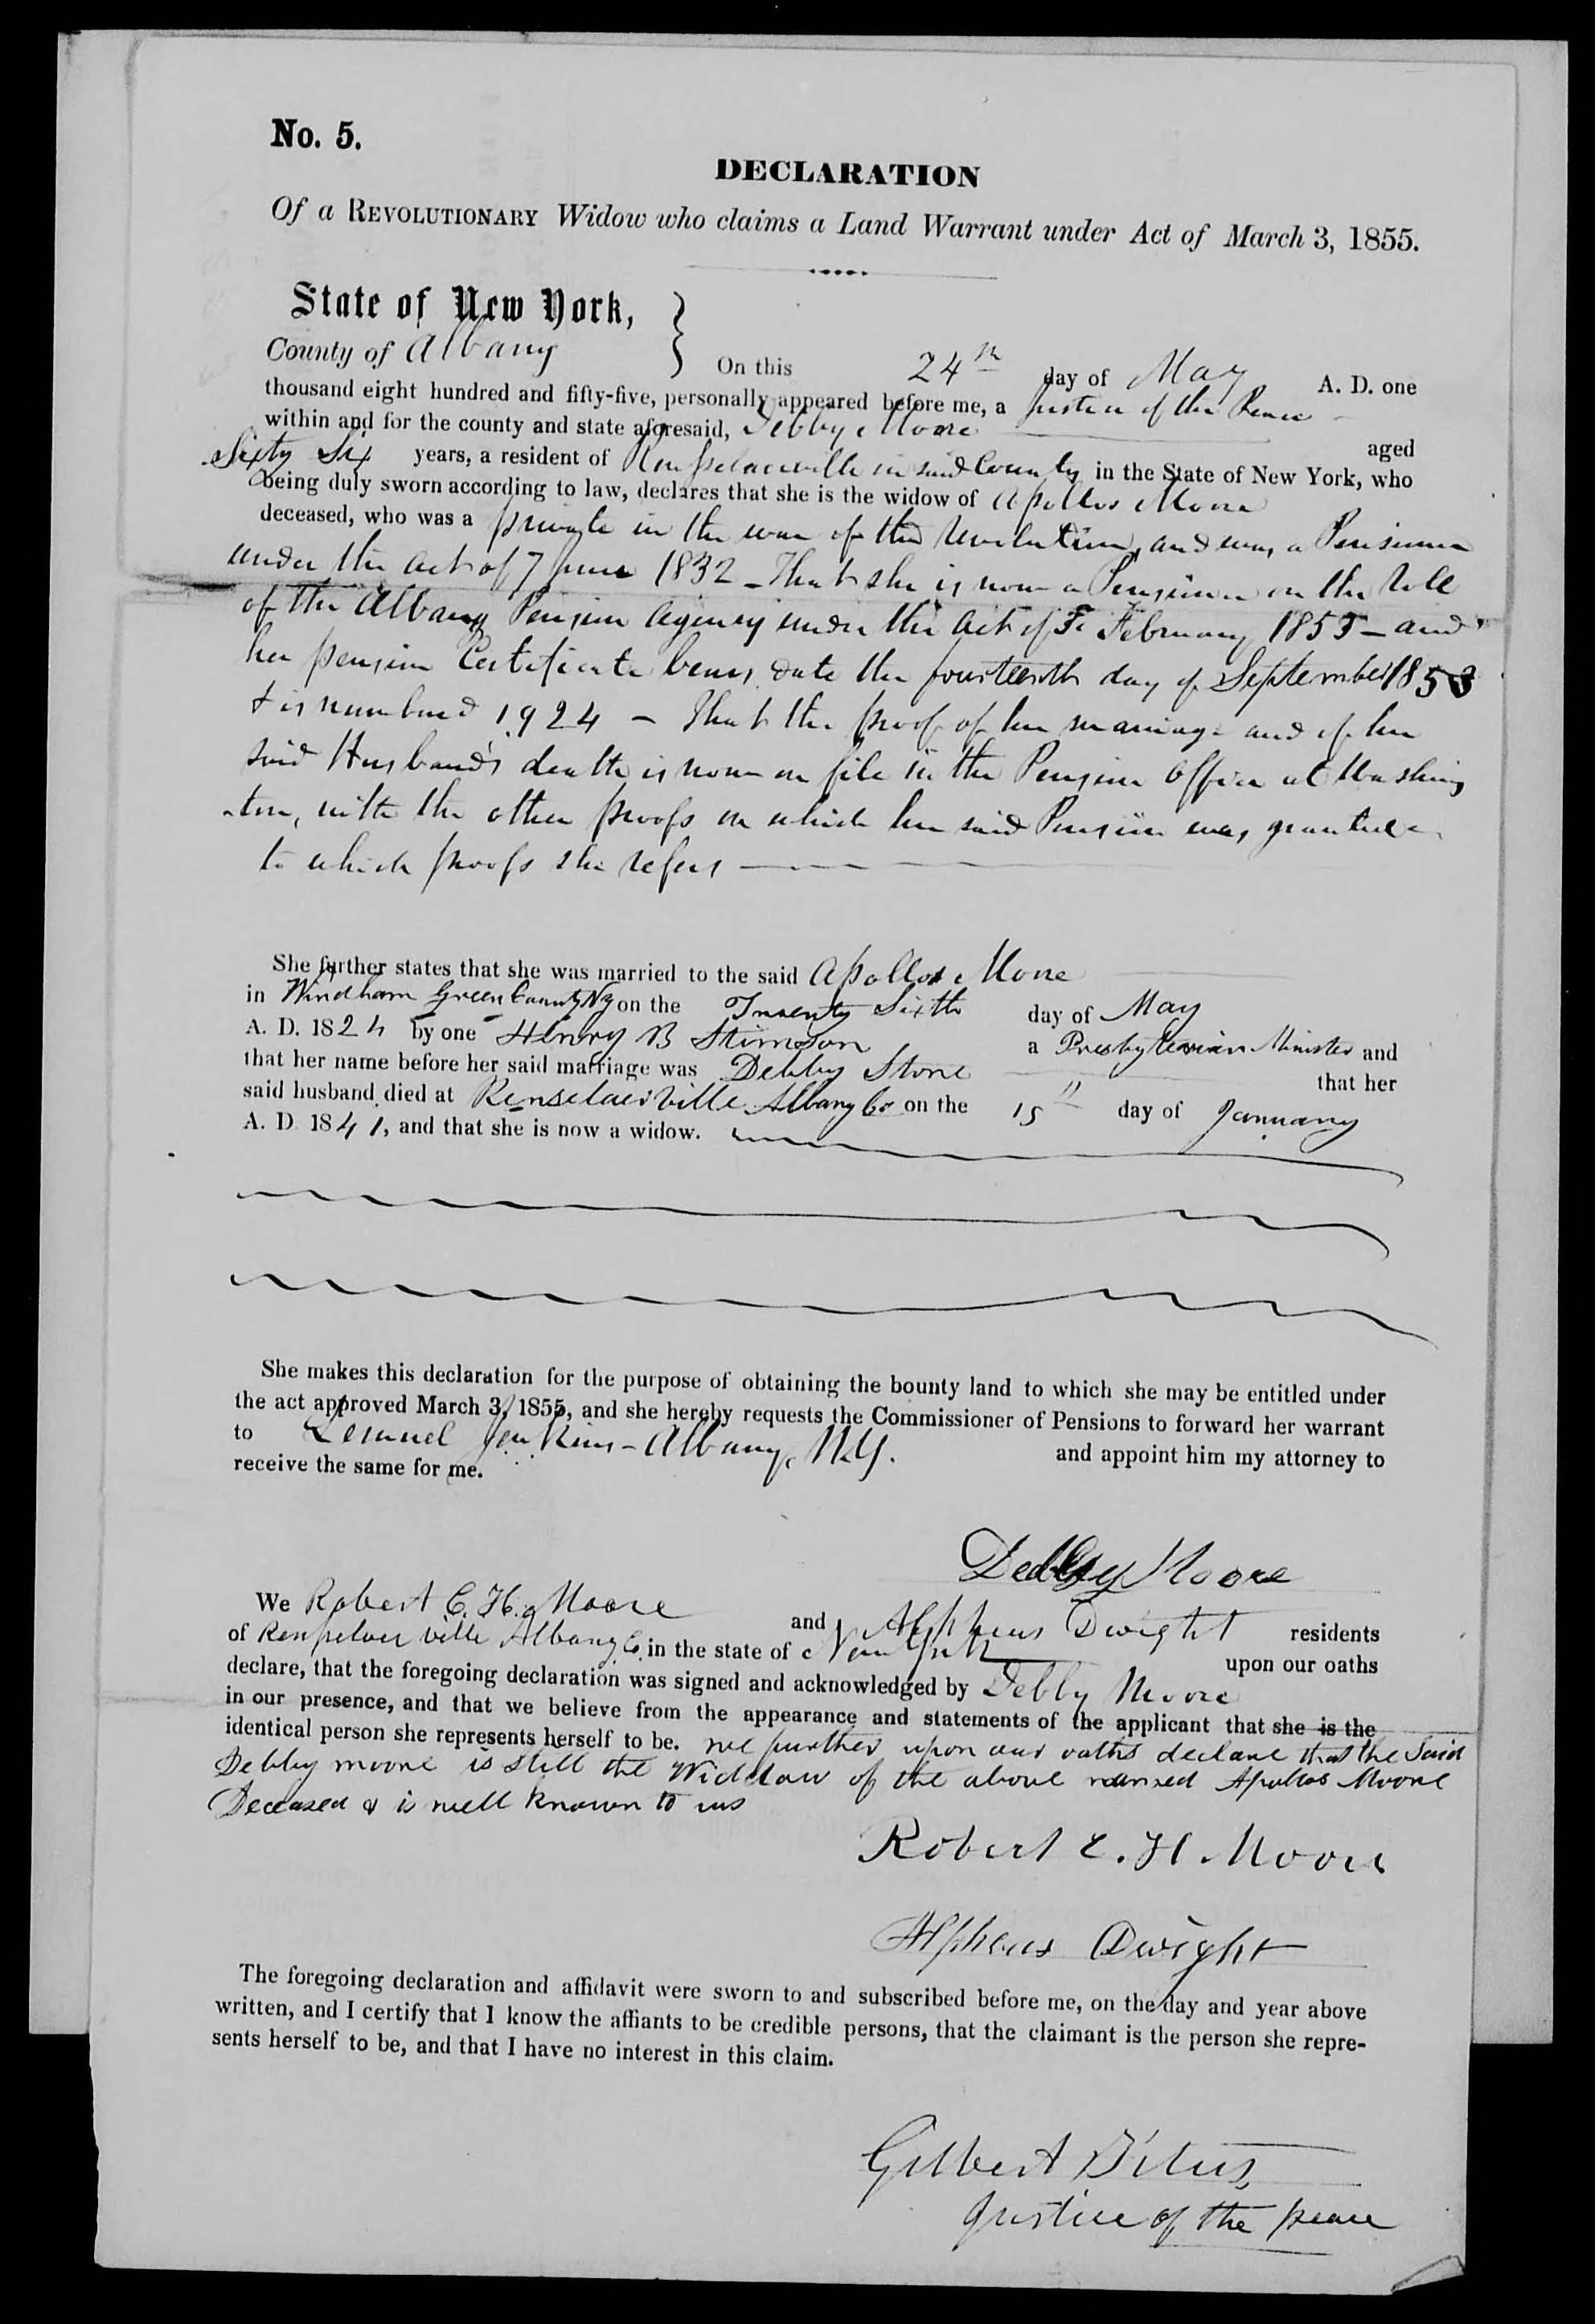 No. 5.
DECLARATION
Of a REVOLUTIONARY Widow who claims a Land Warrant under Act of March 3, 1855.
State of New York,
County of Albany } On this 24th day of May A. D. one
thousand eight hundred and fifty-five, personally appeared before me, a Justice of the Peace
within and for the county and state aforesaid, Debby Moore aged
Sixty Six years, a resident of Rensselaerville in said County in the State of New York, who
being duly sworn according to law, declares that she is the widow of Apollos Moore
deceased, who was a private in the war of the Revolution, and was a Pensioner
under the act of 7 June 1832 - That she is now a Pensioner on the Roll
of the Albany Pension Agency under the Act of February 1853 - and
her pension Certificate bears date the fourteenth day of September 1853
& is numbered 1924 - That the proof of her marriage and of her
said Husband's death is now on file in the Pension Office at Washing
-ton, with the other proofs on which her said Pension was granted
to which proofs she refers
She further states that she was married to the said Apollos Moore
in Windham Green County NY on the Twenty Sixth day of May
A. D. 1824 by one Henry B Stimson a Presbyterian Minister and
that her name before her said marriage was Debby Stone that her
said husband died at Renselaerville Albany Co on the 15th day of January
A. D. 1841, and that she is now a widow.
She makes this declaration for the purpose of obtaining the bounty land to which she may be entitled under
the act approved March 3, 1855, and she hereby requests the Commissioner of Pensions to forward her warrant
to Lemuel Jenkins - Albany, N.Y. and appoint him my attorney to
receive the same for me.
Debby Moore
We Robert E. H. Moore and Alpheus Dwight residents
of Rensselaerville Albany Co. in the state of New York upon our oaths
declare, that the foregoing declaration was signed and acknowledged by Debby Moore
in our presence, and that we believe from the appearance and statements of the applicant that she is the
identical person she represents herself to be. we further upon our oaths declare that the Said
Debby moore is still the Widdow of the above named Apollos Moore
Deceased & is well known to us
Robert E. H. Moore
Alpheus Dwight
The foregoing declaration and affidavit were sworn to and subscribed before me, on the day and year above
written, and I certify that I know the affiants to be credible persons, that the claimant is the person she repre-
sents herself to be, and that I have no interest in this claim.
Gilbert Titus
Justice of the peace